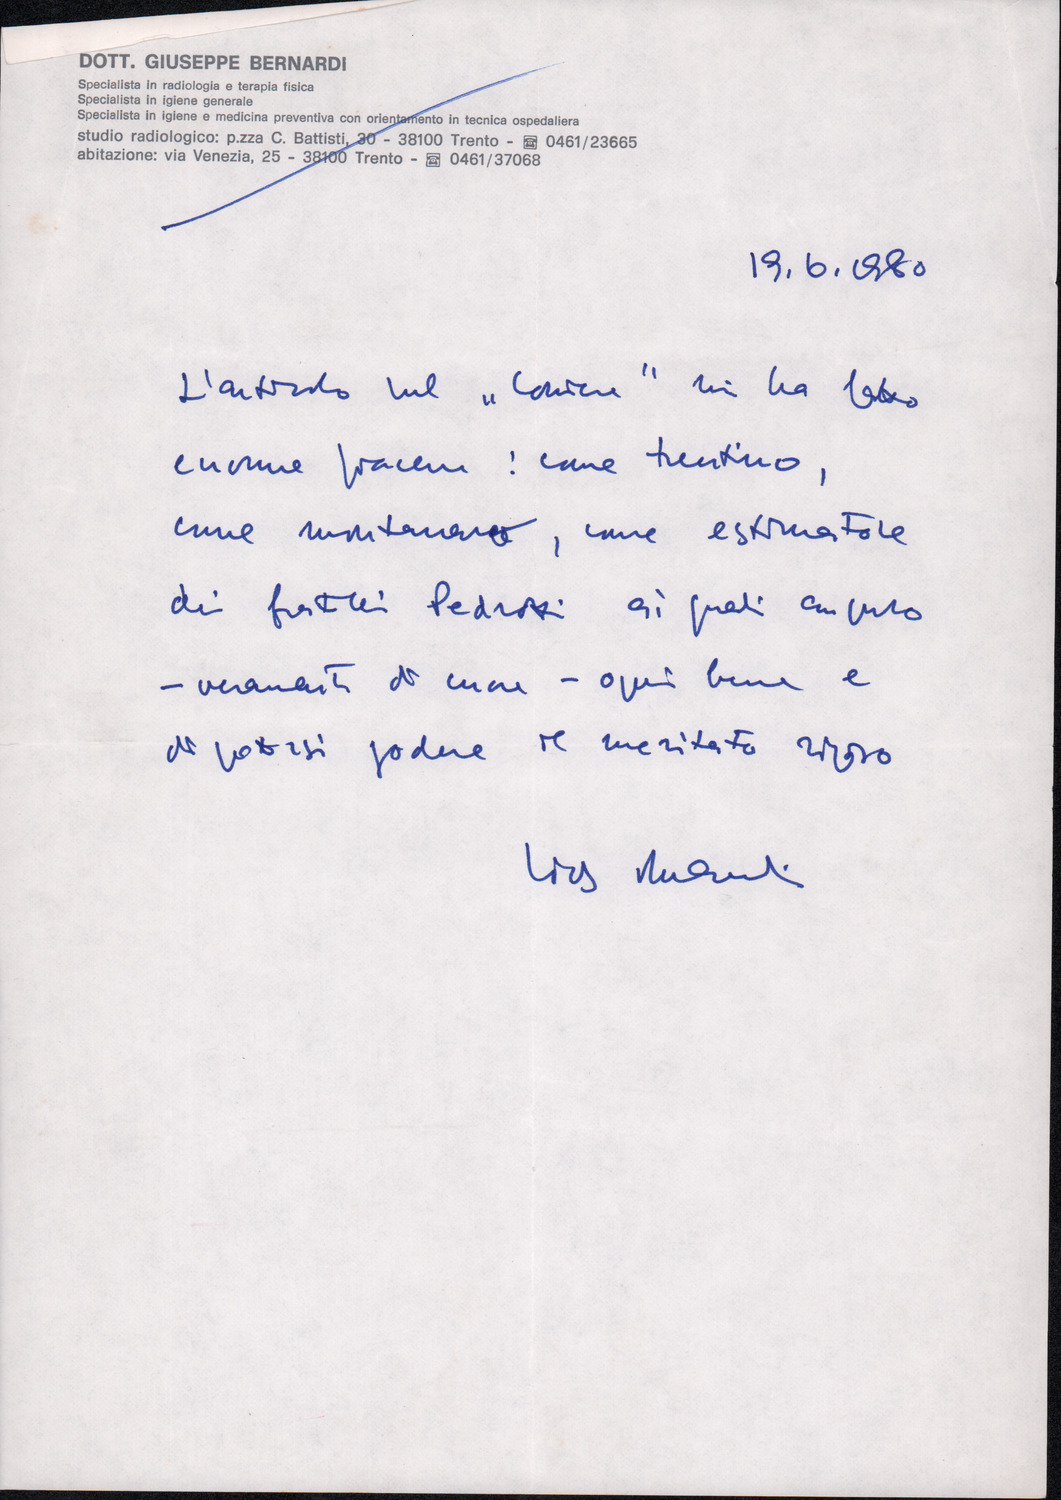 DOTT. GIUSEPPE BERNARDI
Specialista in radiologia e terapia fisica
Specialista in igiene generale
Specialista in igiene e medicina preventiva con orientamento in tecnica ospedaliera
studio radiologico: p.zza C. Battisti, 30 - 38100 Trento - ☎ 0461/23665
abitazione: via Venezia, 25 - 38100 Trento - ☎ 0461/37068
19.6.1980
L'articolo sul „Corriere" mi ha fatto
enorme piacere: come trentino,
come montanaro, come estimatore
dei fratelli Pedrotti ai quali auguro
- veramente di cuore - ogni bene e
di potersi godere il meritato riposo